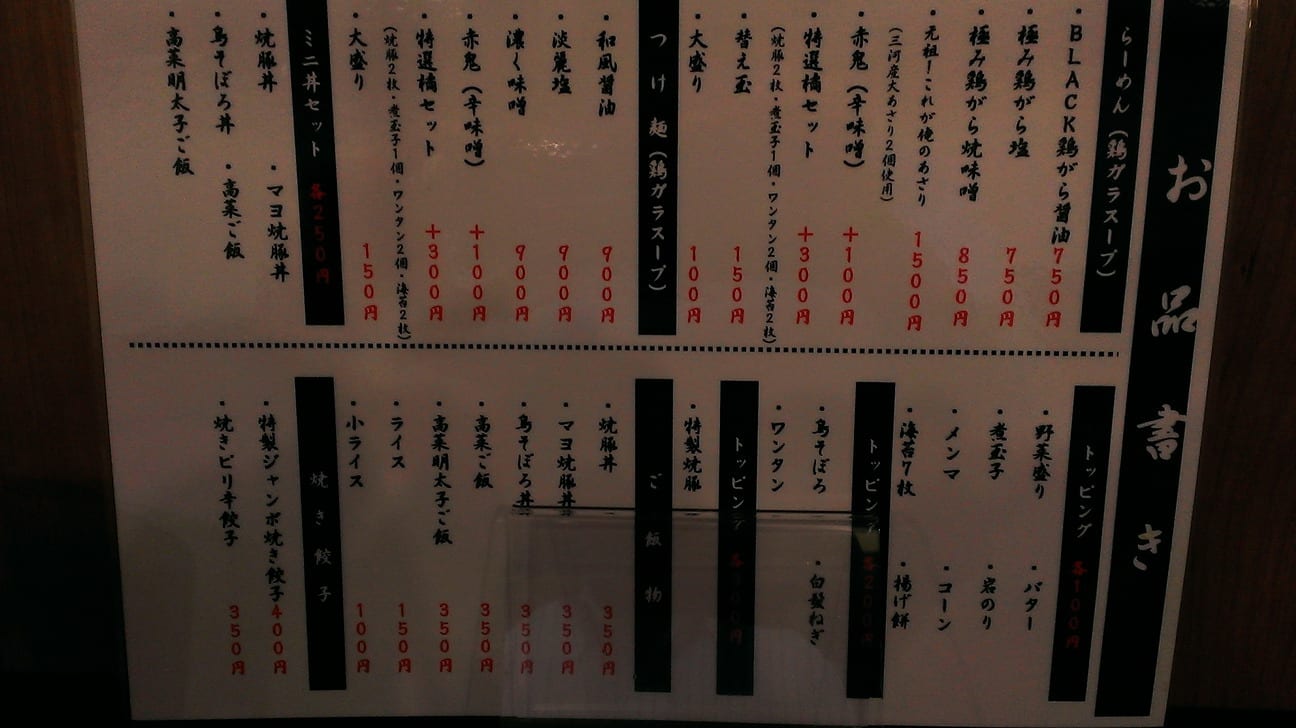 お品書き
らーめん（鶏ガラスープ）
・BLACK鶏がら醤油 750円
・極み鶏がら塩 750円
・極み鶏がら焼味噌 850円
・元祖！これが俺のあさり 1500円
（三河産大あさり2個使用）
・赤鬼（辛味噌） ＋100円
・特選橘セット ＋300円
（焼豚2枚・煮玉子1個・ワンタン2個・海苔2枚）
・替え玉 150円
・大盛り 100円
つけ麺（鶏ガラスープ）
・和風醤油 900円
・淡麗塩 900円
・濃く味噌 900円
・赤鬼（辛味噌） ＋100円
・特選橘セット ＋300円
（焼豚2枚・煮玉子1個・ワンタン2個・海苔2枚）
・大盛り 150円
ミニ丼セット 各250円
・焼豚丼 ・マヨ焼豚丼
・鳥そぼろ丼 ・高菜ご飯
・高菜明太子ご飯
トッピング 各100円
・野菜盛り ・バター
・煮玉子 ・岩のり
・メンマ ・コーン
・海苔7枚 ・揚げ餅
トッピング 各200円
・鳥そぼろ ・白髪ねぎ
・ワンタン
トッピング 各300円
・特製焼豚
ご飯物
・焼豚丼 350円
・マヨ焼豚丼 350円
・鳥そぼろ丼 350円
・高菜ご飯 350円
・高菜明太子ご飯 350円
・ライス 150円
・小ライス 100円
焼き餃子
・特製ジャンボ焼き餃子 400円
・焼きピリ辛餃子 350円